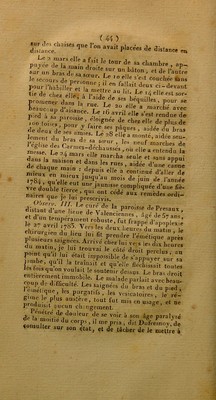 ( 44 )
sur des chaises que l'on avait placées de distance en
distance.
Le 2 mars elle a fait le tour de sa chambre, ap-
puyée de la main droite sur un bâton, et de l'autre
sur un bras de sa sœur. Le 10 elle s'est couchée sans
le secours de personne; il en fallait deux ci-devant
pour l'habiller et la mettre au lit. Le 14 elle est sor-
tie de chez elle, à l'aide de ses béquilles, pour se
promener dans la rue. Le 20 elle a marché avec
beaucoup d'aisance. Le 16 avril elle s'est rendue de
pied à sa paroisse, éloignée de chez elle de plus de
cent toises, pour y faire ses pâques, aidée du bras
de deux de ses amies. Le 28 elle a monté, aidée seu-
lement du bras de sa sœur, les neuf marches de
l'église des Carmes-déchaussés, où elle a entendu la
messe. Le 24 mars elle marcha seule et sans appui
dans la maison et dans les rues, aidée d'une canne
de chaque main : depuis elle a continué d'aller de
mieux en mieux jusqu'à mois de juin de l'année
1784, qu'elle eut une jaunisse compliquée d'une fiè-
vre double tierce, qui ont cédé aux remèdes ordi-
naires que je lui prescrivis.
Observ. III. Le curé de la paroisse de Presaux,
distant d'une lieue de Valenciennes, âgé de 57 ans,
et d'un tempérament robuste, fut frappé d'apoplexie
le 27 avril 1783. Vers les deux heures du matin, le
chirurgien du lieu lui fit prendre l'émétique après
plusieurs saignées. Arrivé chez lui vers les dix heures
du matin, je lui trouvai le côté droit perclus, au
point qu'il lui était impossible de s'appuyer sur sa
jambe, qu'il la traînait et qu'elle fléchissait toutes
les fois qu'on voulait le soutenir dessus. Le bras droit
entièrement immobile. Le malade parlait avec beau-
coup de difficulté. Les saignées du bras et du pied,
l'émétique, les purgatifs, les vésicatoires, le ré-
gime le plus austère, tout fut mis en usage, et ne
produisit aucun changement.
Pénétré de douleur de se voir à son âge paralysé
de la moitié du corps, il me pria, dit Dufresnoy, de
consulter sur son état, et de tâcher de le mettre à